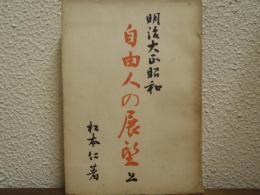 明治大正昭和
自由人の展望 上
松本仁著